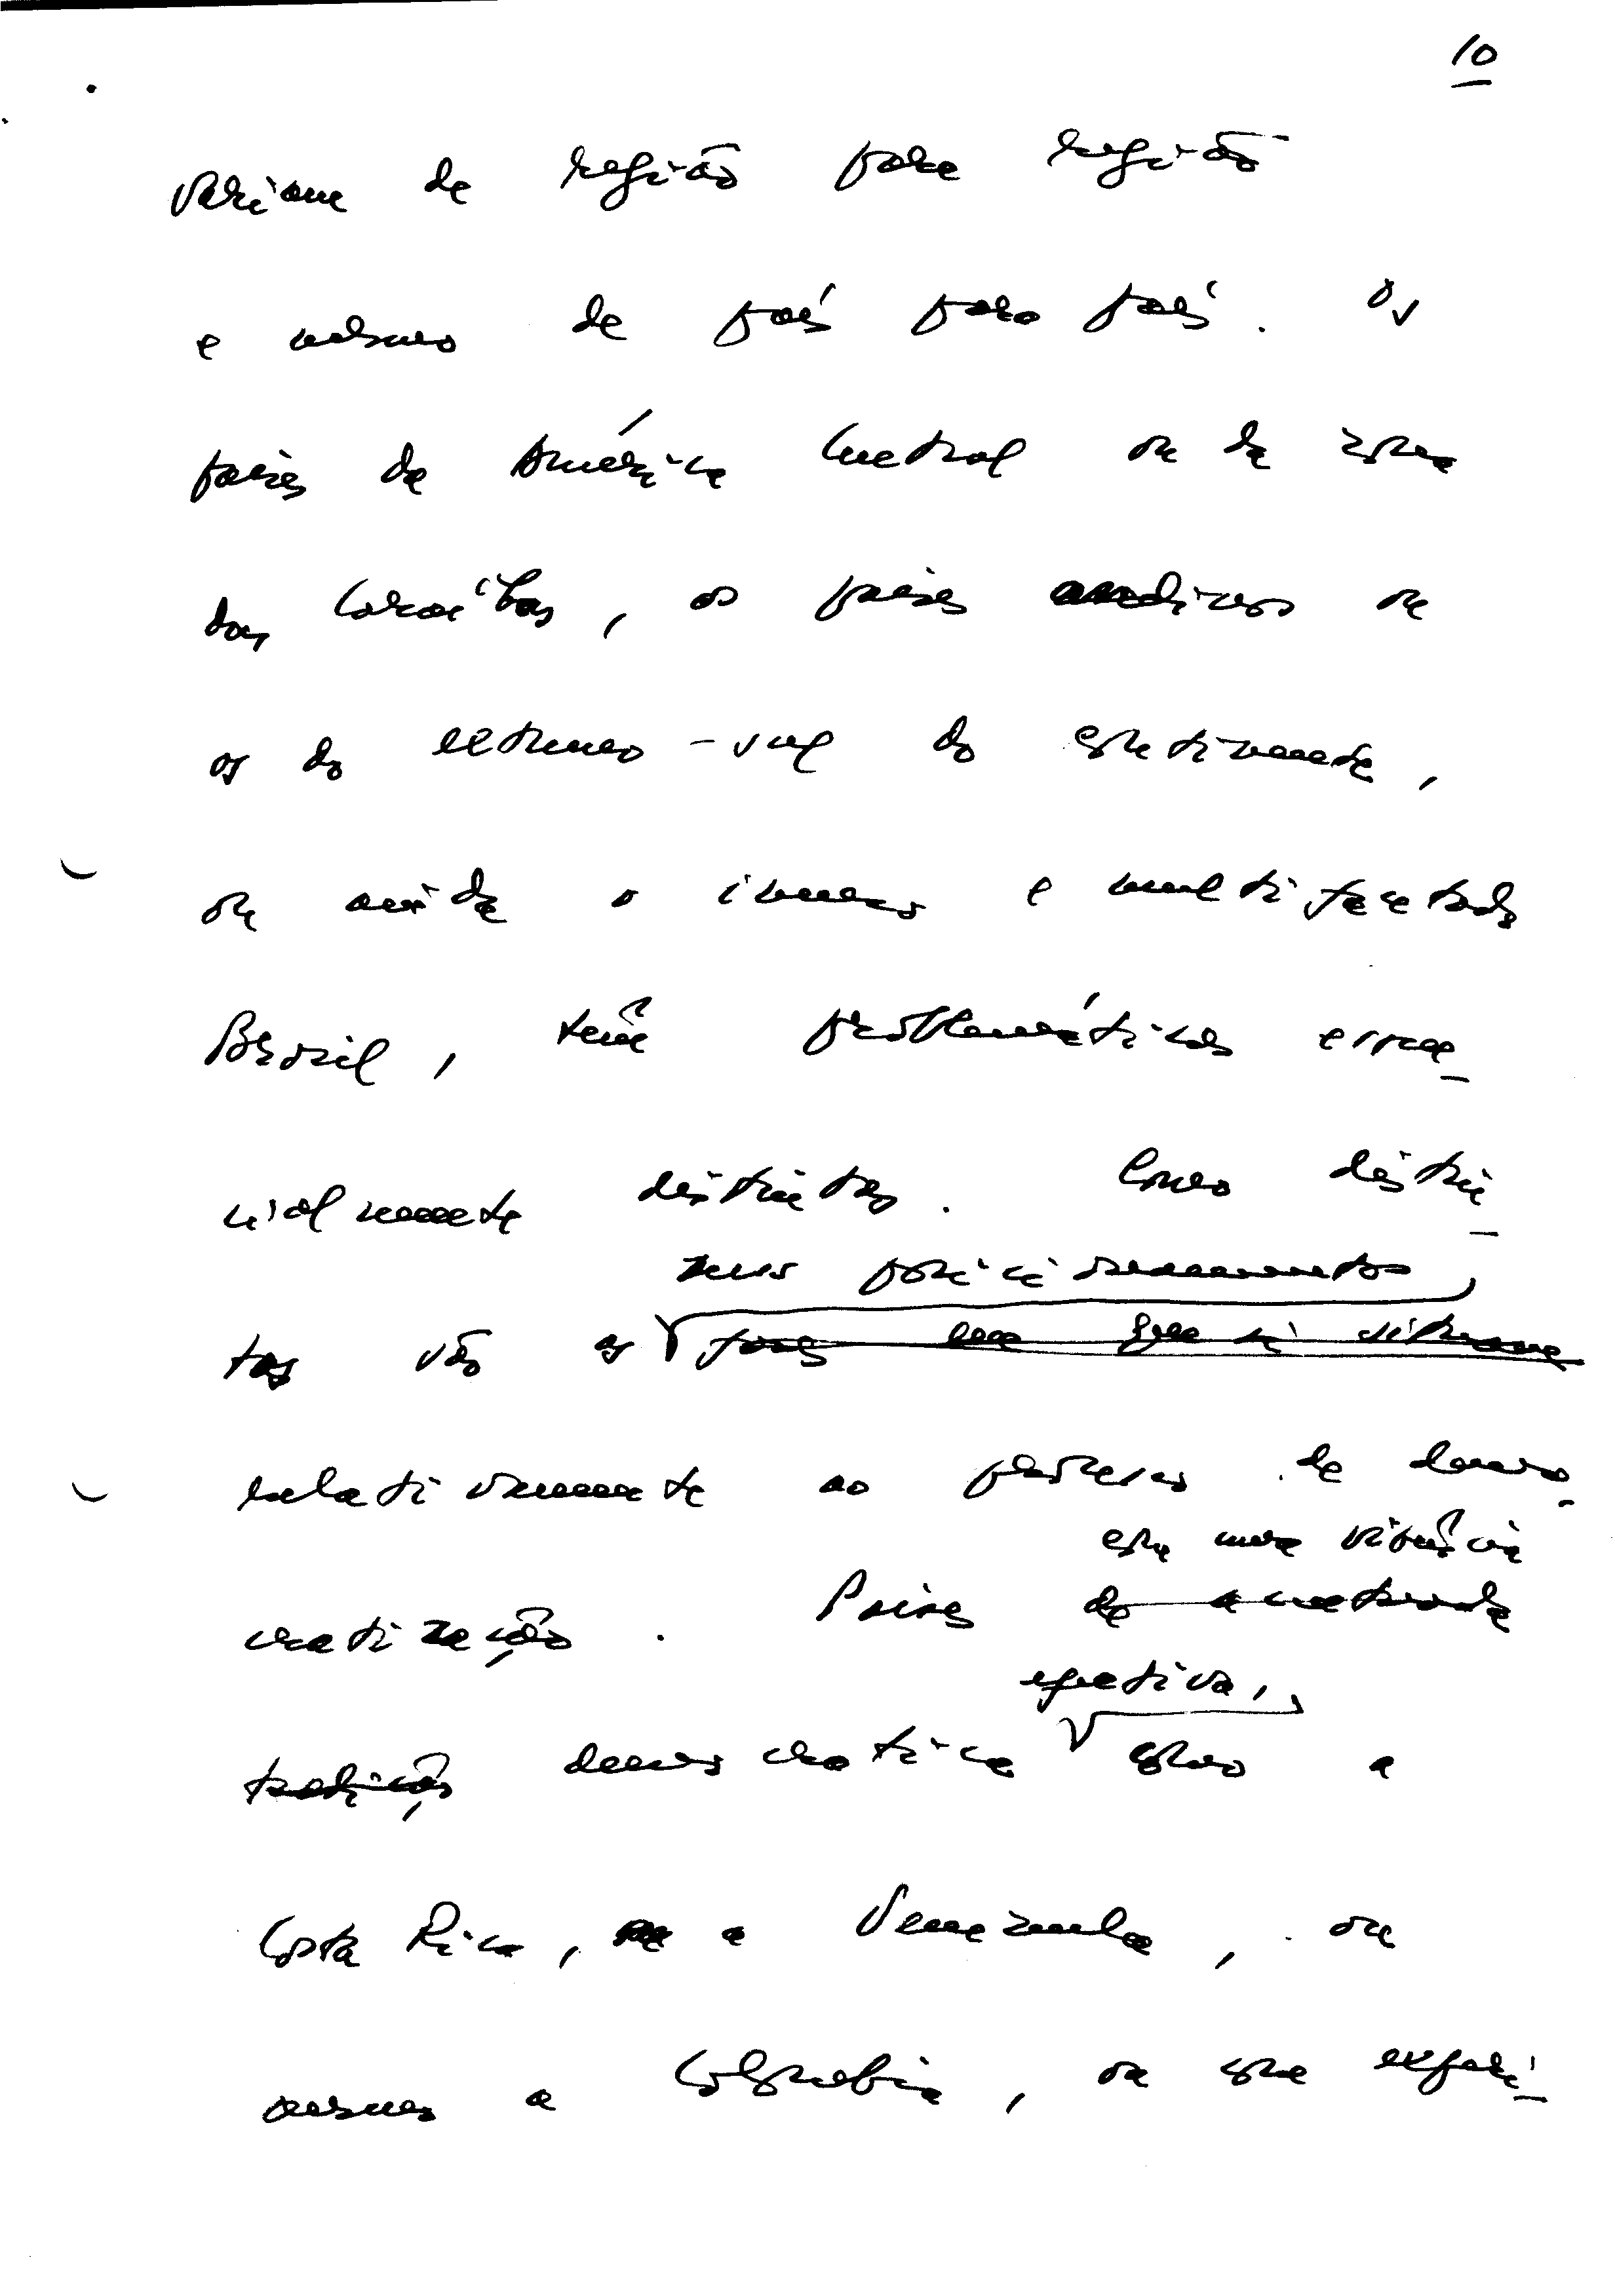 10
variam de região para região
e mesmo de país para país. Os
países da América Central ou da zona
das Caraíbas, os países andinos ou
os do extremo-sul do continente,
ou ainda o imenso e multifacetado
Brasil, têm problemáticas essen-
cialmente distintas. Como distin-
seus posicionamentos
tas são os
relativamente ao processo de demo-
com uma vivência
cratização. Países de
efectiva,
tradição democrática como a
Costa Rica, a Venezuela, ou
mesmo a Colombia, ou com experi-